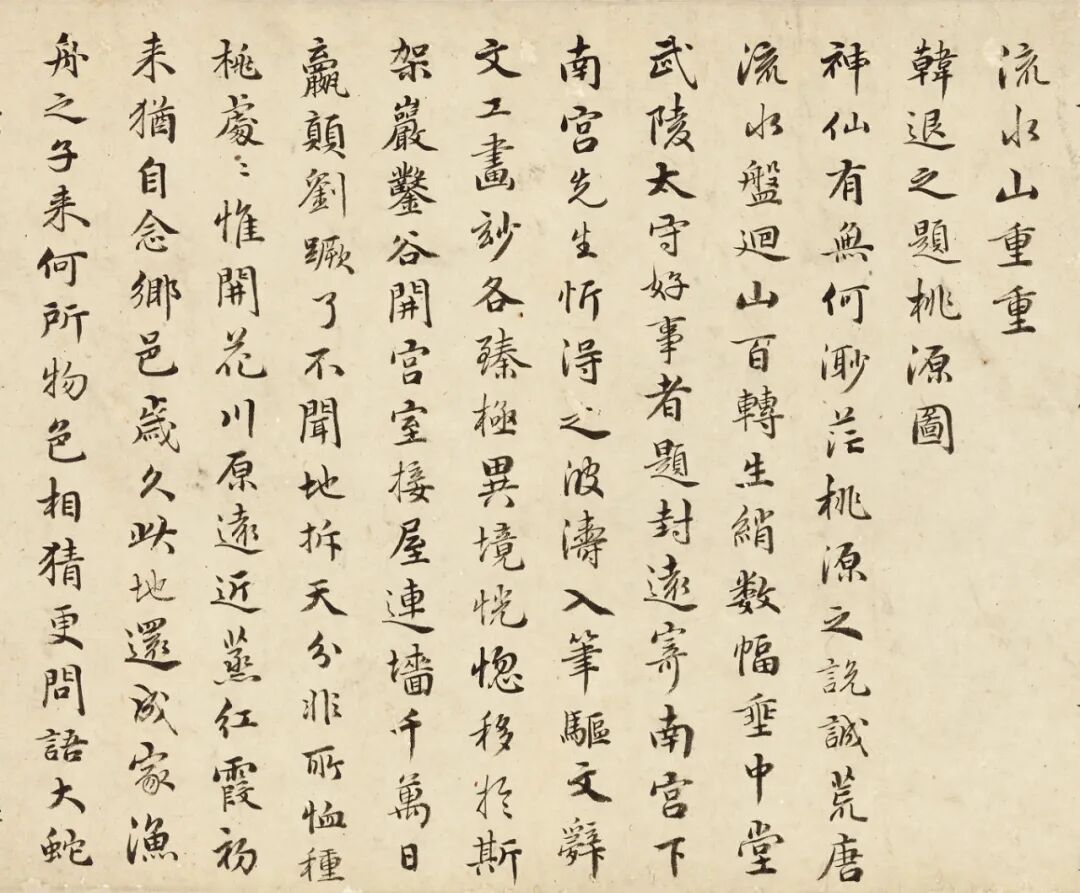 流水山重重
韓退之題桃源圖
神仙有無何渺茫桃源之說誠荒唐
流水盤迴山百轉生綃數幅垂中堂
武陵太守好事者題封遠寄南宮下
南宮先生忻得之波濤入筆驅文辭
文工畫玅各臻極異境恍惚移於斯
架巖鑿谷開宮室接屋連墻千萬日
嬴顛劉蹶了不聞地拆天分非所恤種
桃處〻惟開花川原遠近蒸紅霞初
来猶自念鄉邑歲久此地還成家漁
舟之子来何所物色相猜更問語大蛇